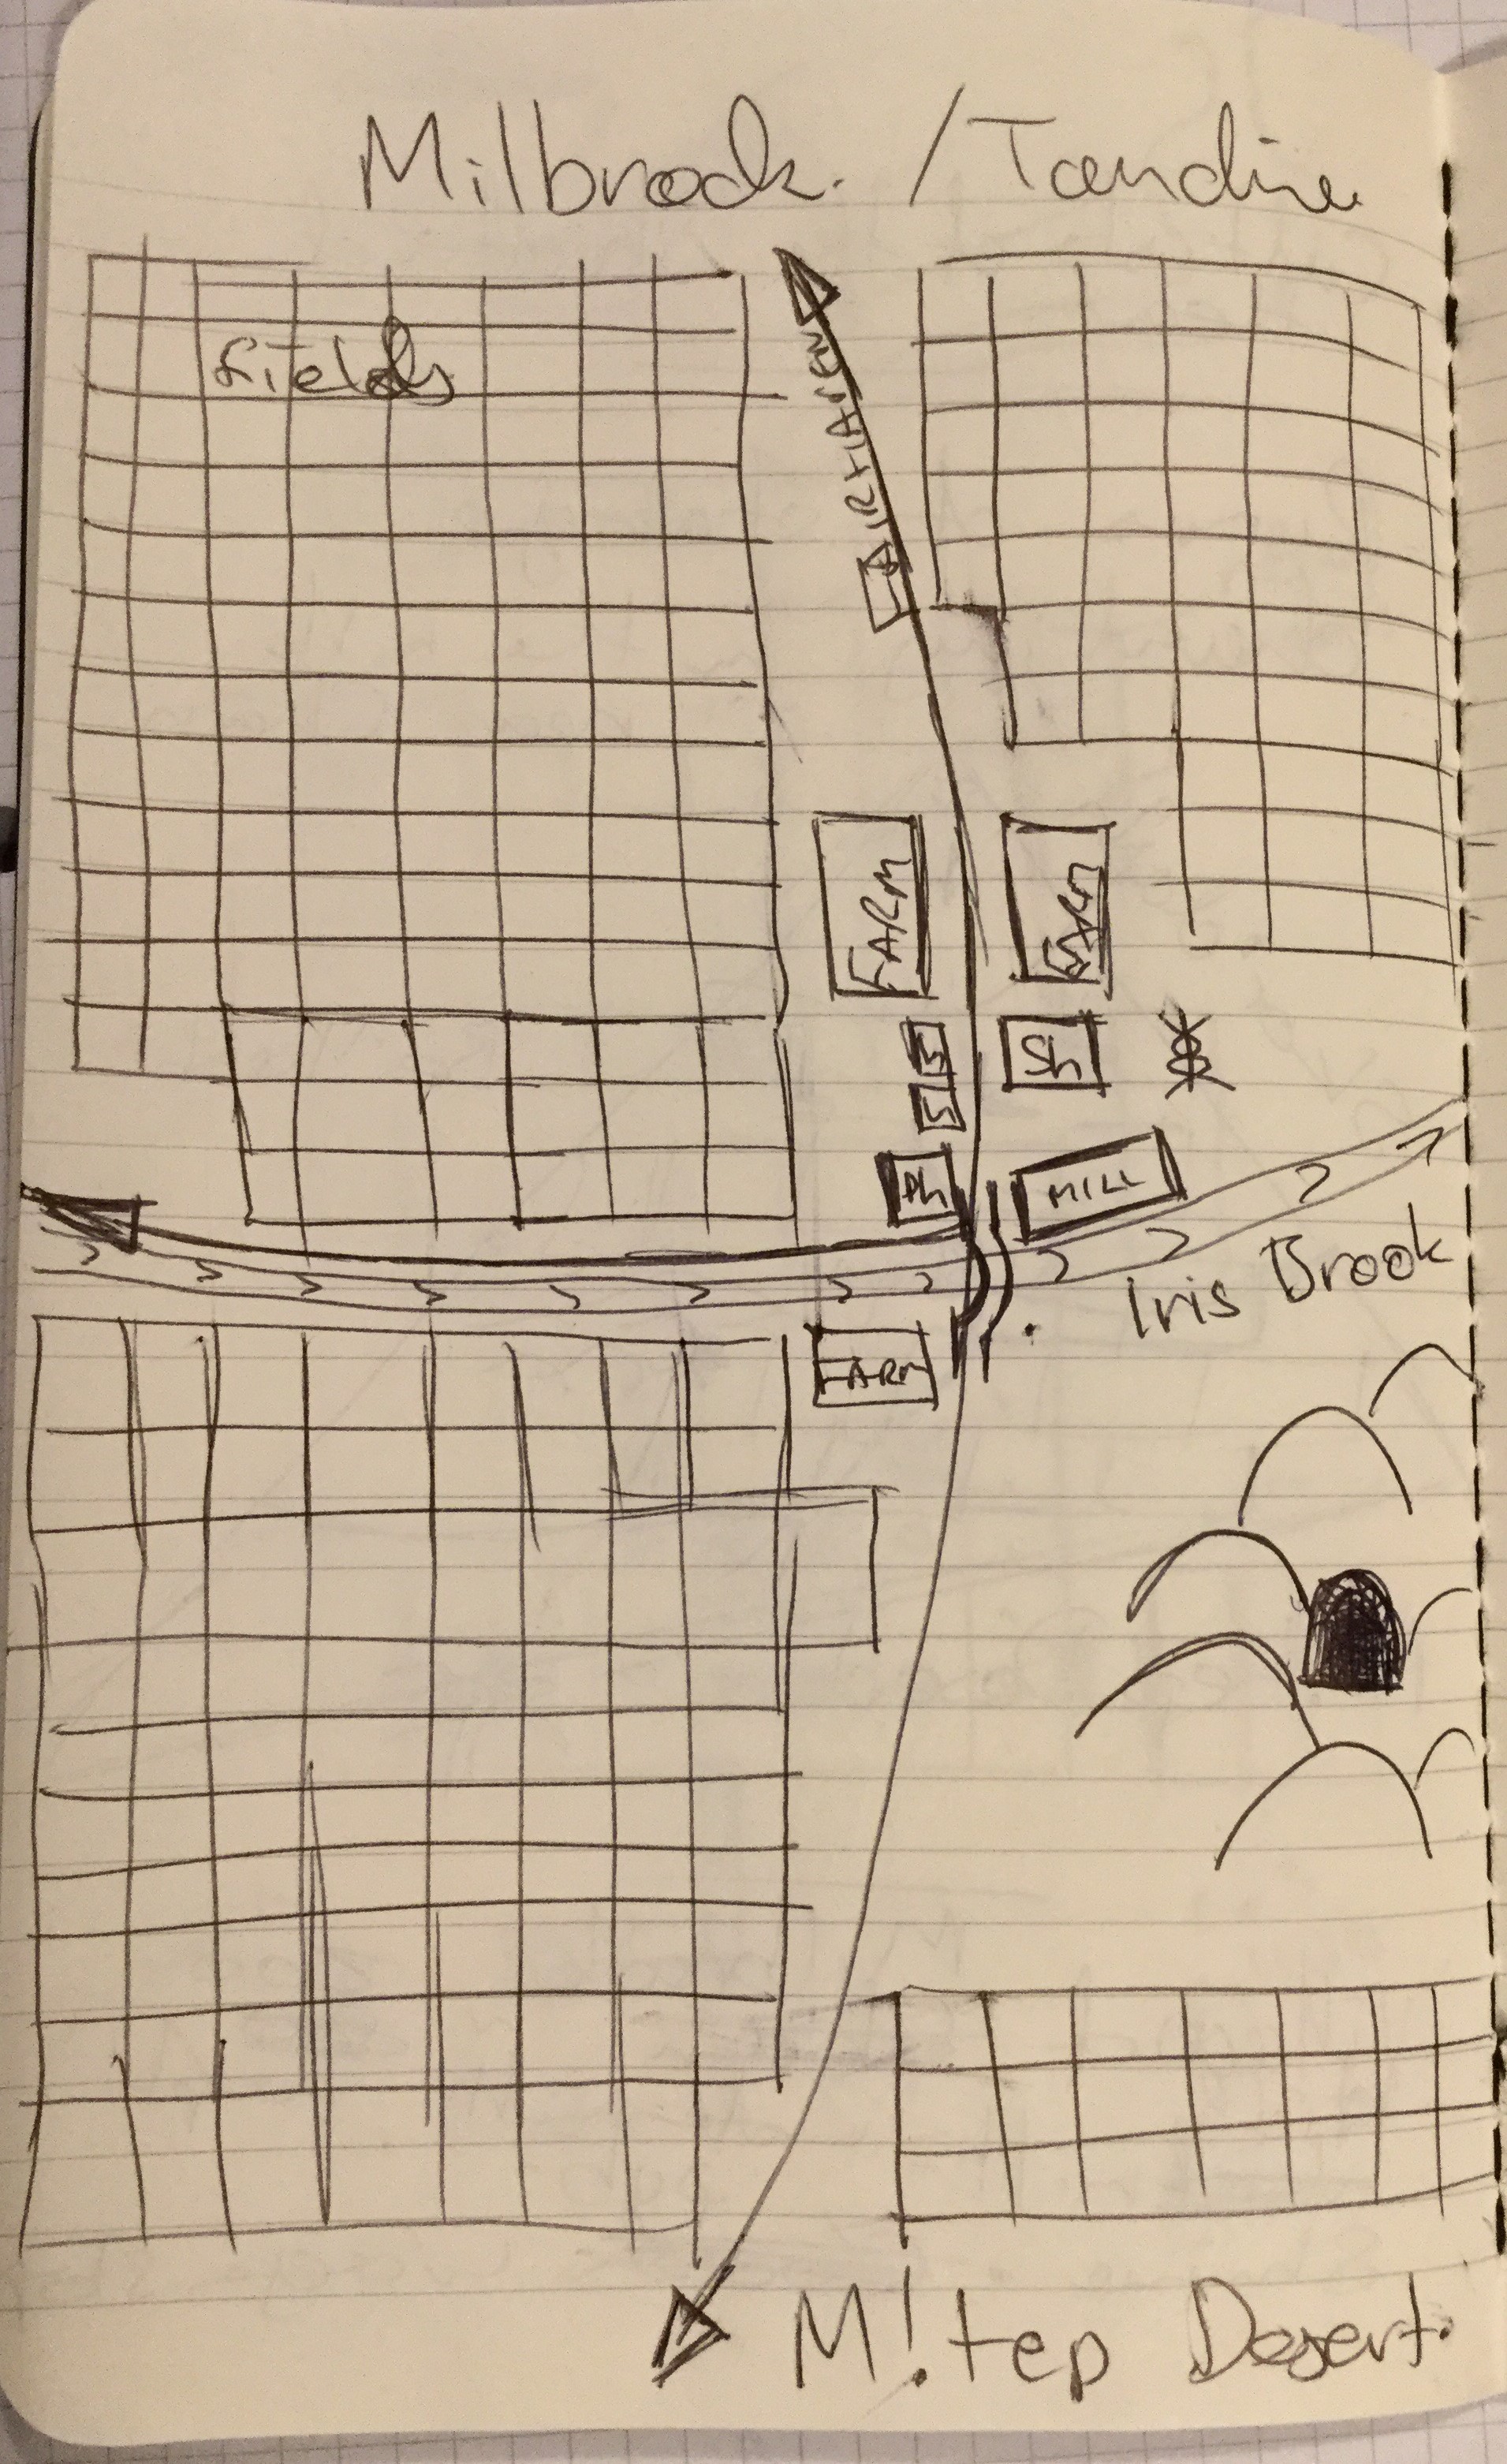 Milbrook. / Tandire
fields
FAIRHAVEN
FARM
FARM
S
Sh
S
Ph
MILL
Iris Brook
FARM
M!tep Desert.